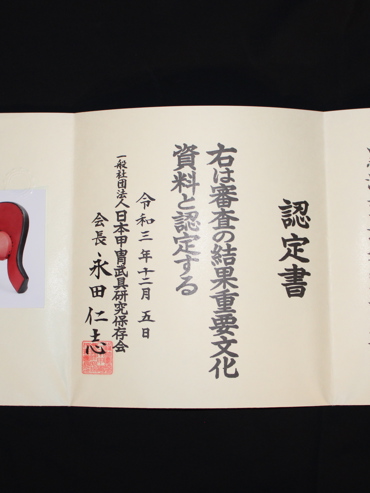 認定書
右は審査の結果重要文化
資料と認定する
令和三年十二月五日
一般社団法人日本甲冑武具研究保存会
会長永田仁志